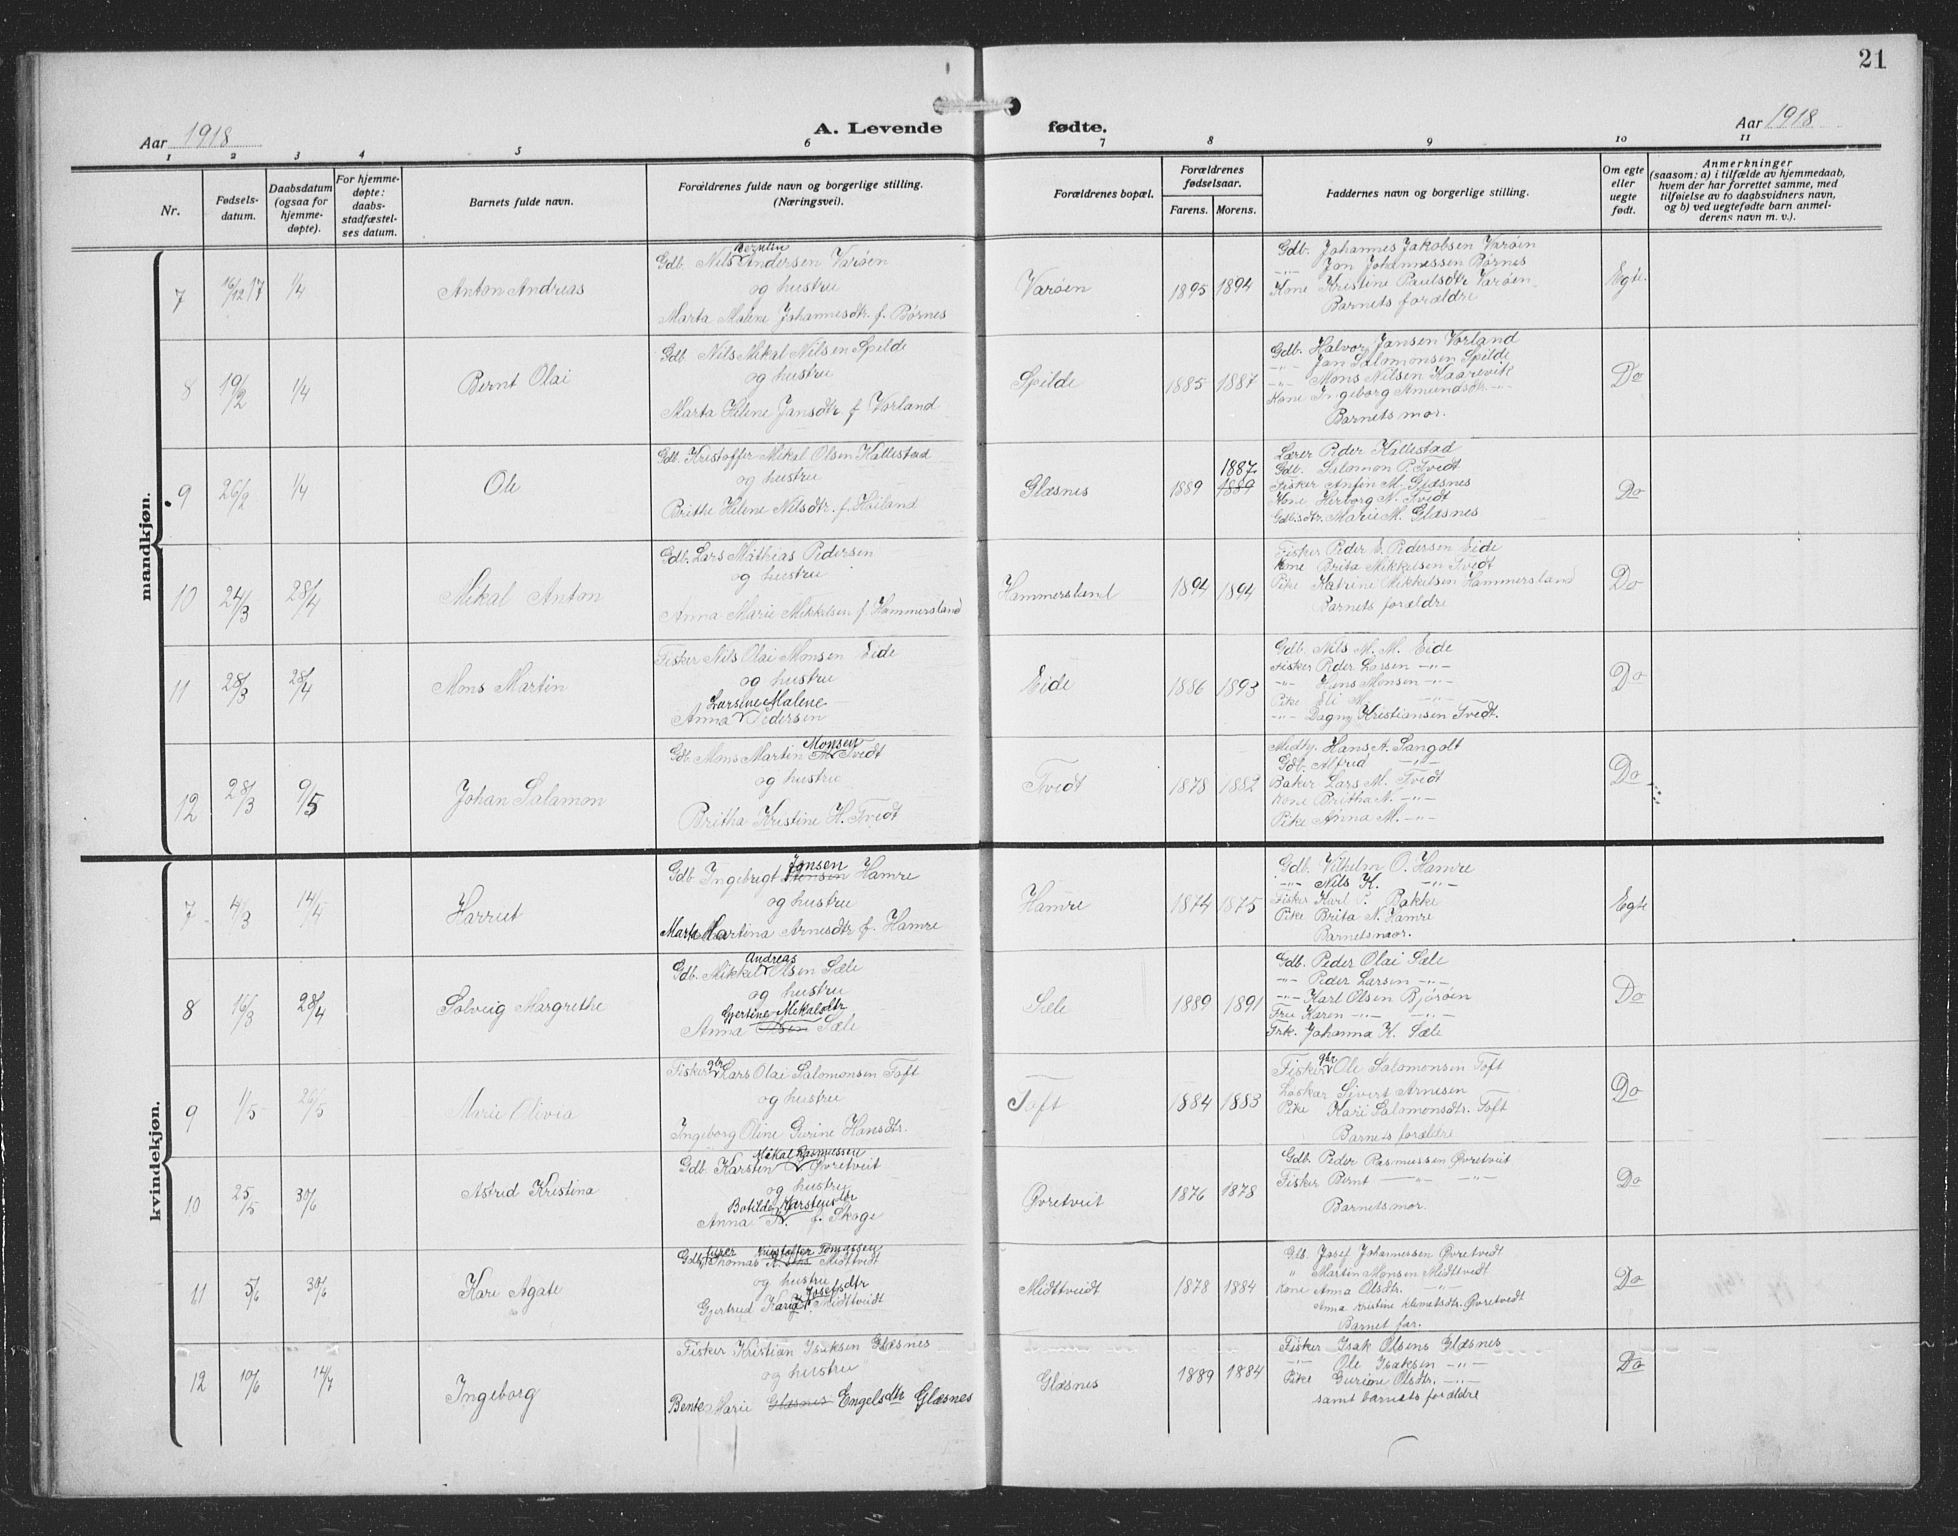 21
Aar 1918
A. Levende fødte.
Aar 1918
1 2 3 4 5 6 7 8 9 10 11
Nr.
Fødsels-
datum.
Daabsdatum
(ogsaa for
hjemme-
døpte).
For hjemme-
døpte:
daabs-
stadfæstel-
ses datum.
Barnets fulde navn.
Forældrenes fulde navn og borgerlige stilling.
(Næringsvei).
Forældrenes bopæl.
Forældrenes
fødselsaar.
Farens. Morens.
Faddernes navn og borgerlige stilling.
Om egte
eller
uegte
født.
Anmerkninger
(saasom: a) i tilfælde av hjemmedaab,
hvem der har forrettet samme, med
tilføielse av to daabsvidners navn,
og b) ved uegtefødte barn anmel-
derens navn m. v.).
mandkjøn.
7 16/12 17 1/4 Anton Andreas
Berntin
Gdb. Nils Andersen Varøen
og hustru
Marta Malene Johannesdtr. f. Børnes
Varøen 1895 1894
Gdb. Johannes Jakobsen Varøen
-"- Jon Johannessen Børnes
Kone Kristine Paulsdtr Varøen
Barnets forældre
Egte
8 19/2 1/4 Bernt Olai
Gdb. Nils Mikal Nilsen Spilde
og hustru
Marta Helene Jansdtr f Vorland
Spilde 1885 1887
Gdb. Halvor Jansen Vorland
-"- Jan Salomonsen Spilde
-"- Mons Nilsen Kaarevik
Kone Ingeborg Amundsdtr -"-
Barnets mor.
Do
9 26/2 1/4 Ole
Gdb. Kristoffer Mikal Olsen Kallestad
og hustru
Brithe Helene Nilsdtr. f. Høiland
Glæsnes 1889 1887 1889
Lærer Peder Kallestad
Gdb. Salomon P. Tvedt
Fisker Anton M. Glæsnes
Kone Herborg N. Tvedt
Gdbisdtr. Marie M. Glæsnes
Do
10 24/3 28/4 Mikal Anton
Gdb. Lars Mathias Pedersen
og hustru
Anna Marie Mikkelsen f Hammersland
Hammersland 1894 1894
Fisker Peder E. Pedersen Eide
Kone Brita Mikkelsen Tvedt
Pike Katrine Mikkelsen Hammersland
Barnets forældre
Do
11 28/3 28/4 Mons Martin
Fisker Nils Olai Monsen Eide
og hustru
Larsine Malene
Anna Pedersen
Eide 1886 1893
Gdb. Nils M. M. Eide
Fisker Peder Larsen -"-
-"- Hans Monsen -"-
Pike Eli M. -"-
-"- Dagny Kristiansen Tvedt.
Do
12 28/3 9/5 Johan Salamon
Monsen
Gdb. Mons Martin Tvedt
og hustru
Britha Kristine H. Tvedt
Tvedt 1878 1882
Hans A. Sangolt
Gdb. Alfred -"-
Baker Lars M. Tvedt
Kone Britha N. -"-
Pike Anna M. -"-
Do
kvindekjøn.
7 4/3 14/4 Harriet
Jonsen
Gdb. Ingebrigt Stensen Hamre
og hustru
Marta Martina Arnesdtr f. Hamre
Hamre 1874 1875
Gdb. Vilhelm O. Hamre
-"- Nils K. -"-
Fisker Karl Bakke
Pike Brita N. Hamre
Barnets mor.
Egte
8 16/3 28/4 Solveig Margrethe
Andreas
Gdb. Mikkal Olsen Sæle
og hustru
Gjertine Mikalsdtr
Anna Olsen Sæle
Sæle 1889 1891
Gdb. Peder Olai Sæle
-"- Peder Larsen -"-
-"- Karl Olsen Bjørøen
Fru Karen -"- -"-
Frk. Johanna K. Sæle
Do
9 1/5 26/5 Marie Olivia
gbr
Fisker Lars Olai Salomonsen Toft
og hustru
Ingeborg Oline Gurine Hansdtr.
Toft 1884 1883
gbr
Fisker Ole Salomonsen Toft
Laskar Sivert Arnesen
Pike Kari Salomonsdtr. Toft
Barnets forældre
Do
10 25/5 30/6 Astrid Kristina
Mikal Rasmussen
Gdb Karsten Øvretveit
og hustru
Botilde Karstensdtr
Anna N. f. Skoge
Øvretveit 1876 1878
Gdb. Peder Rasmussen Øvretveit
Fisker Bernt -"- -"-
Barnets mor.
Do
11 5/6 30/6 Kari Agate
lærer Kristoffer Tomassen
Gdb. Thomas K. Midttvedt
og hustru
Josefsdtr
Gjertrud Kari Midttveidt
Midttveidt 1878 1884
Gdb. Josef Johannessen Øvretvedt
" Martin Monsen Midttvedt
Kone Anna Olsdtr. -"-
Anna Kristine Klemetsdtr. Øvretvedt
Barnet far.
Do
12 10/6 14/7 Ingeborg
Fisker Kristian Isaksen Glæsnes
og hustru
Bente Marie Glæsnes Engelsdtr Glæsnes
Glæsnes 1889 1884
Fisker Isak Olsens Glæsnes
-"- Ole Isaksen -"-
Pike Gurine Olsdtr. -"-
samt barnets forældre
Do